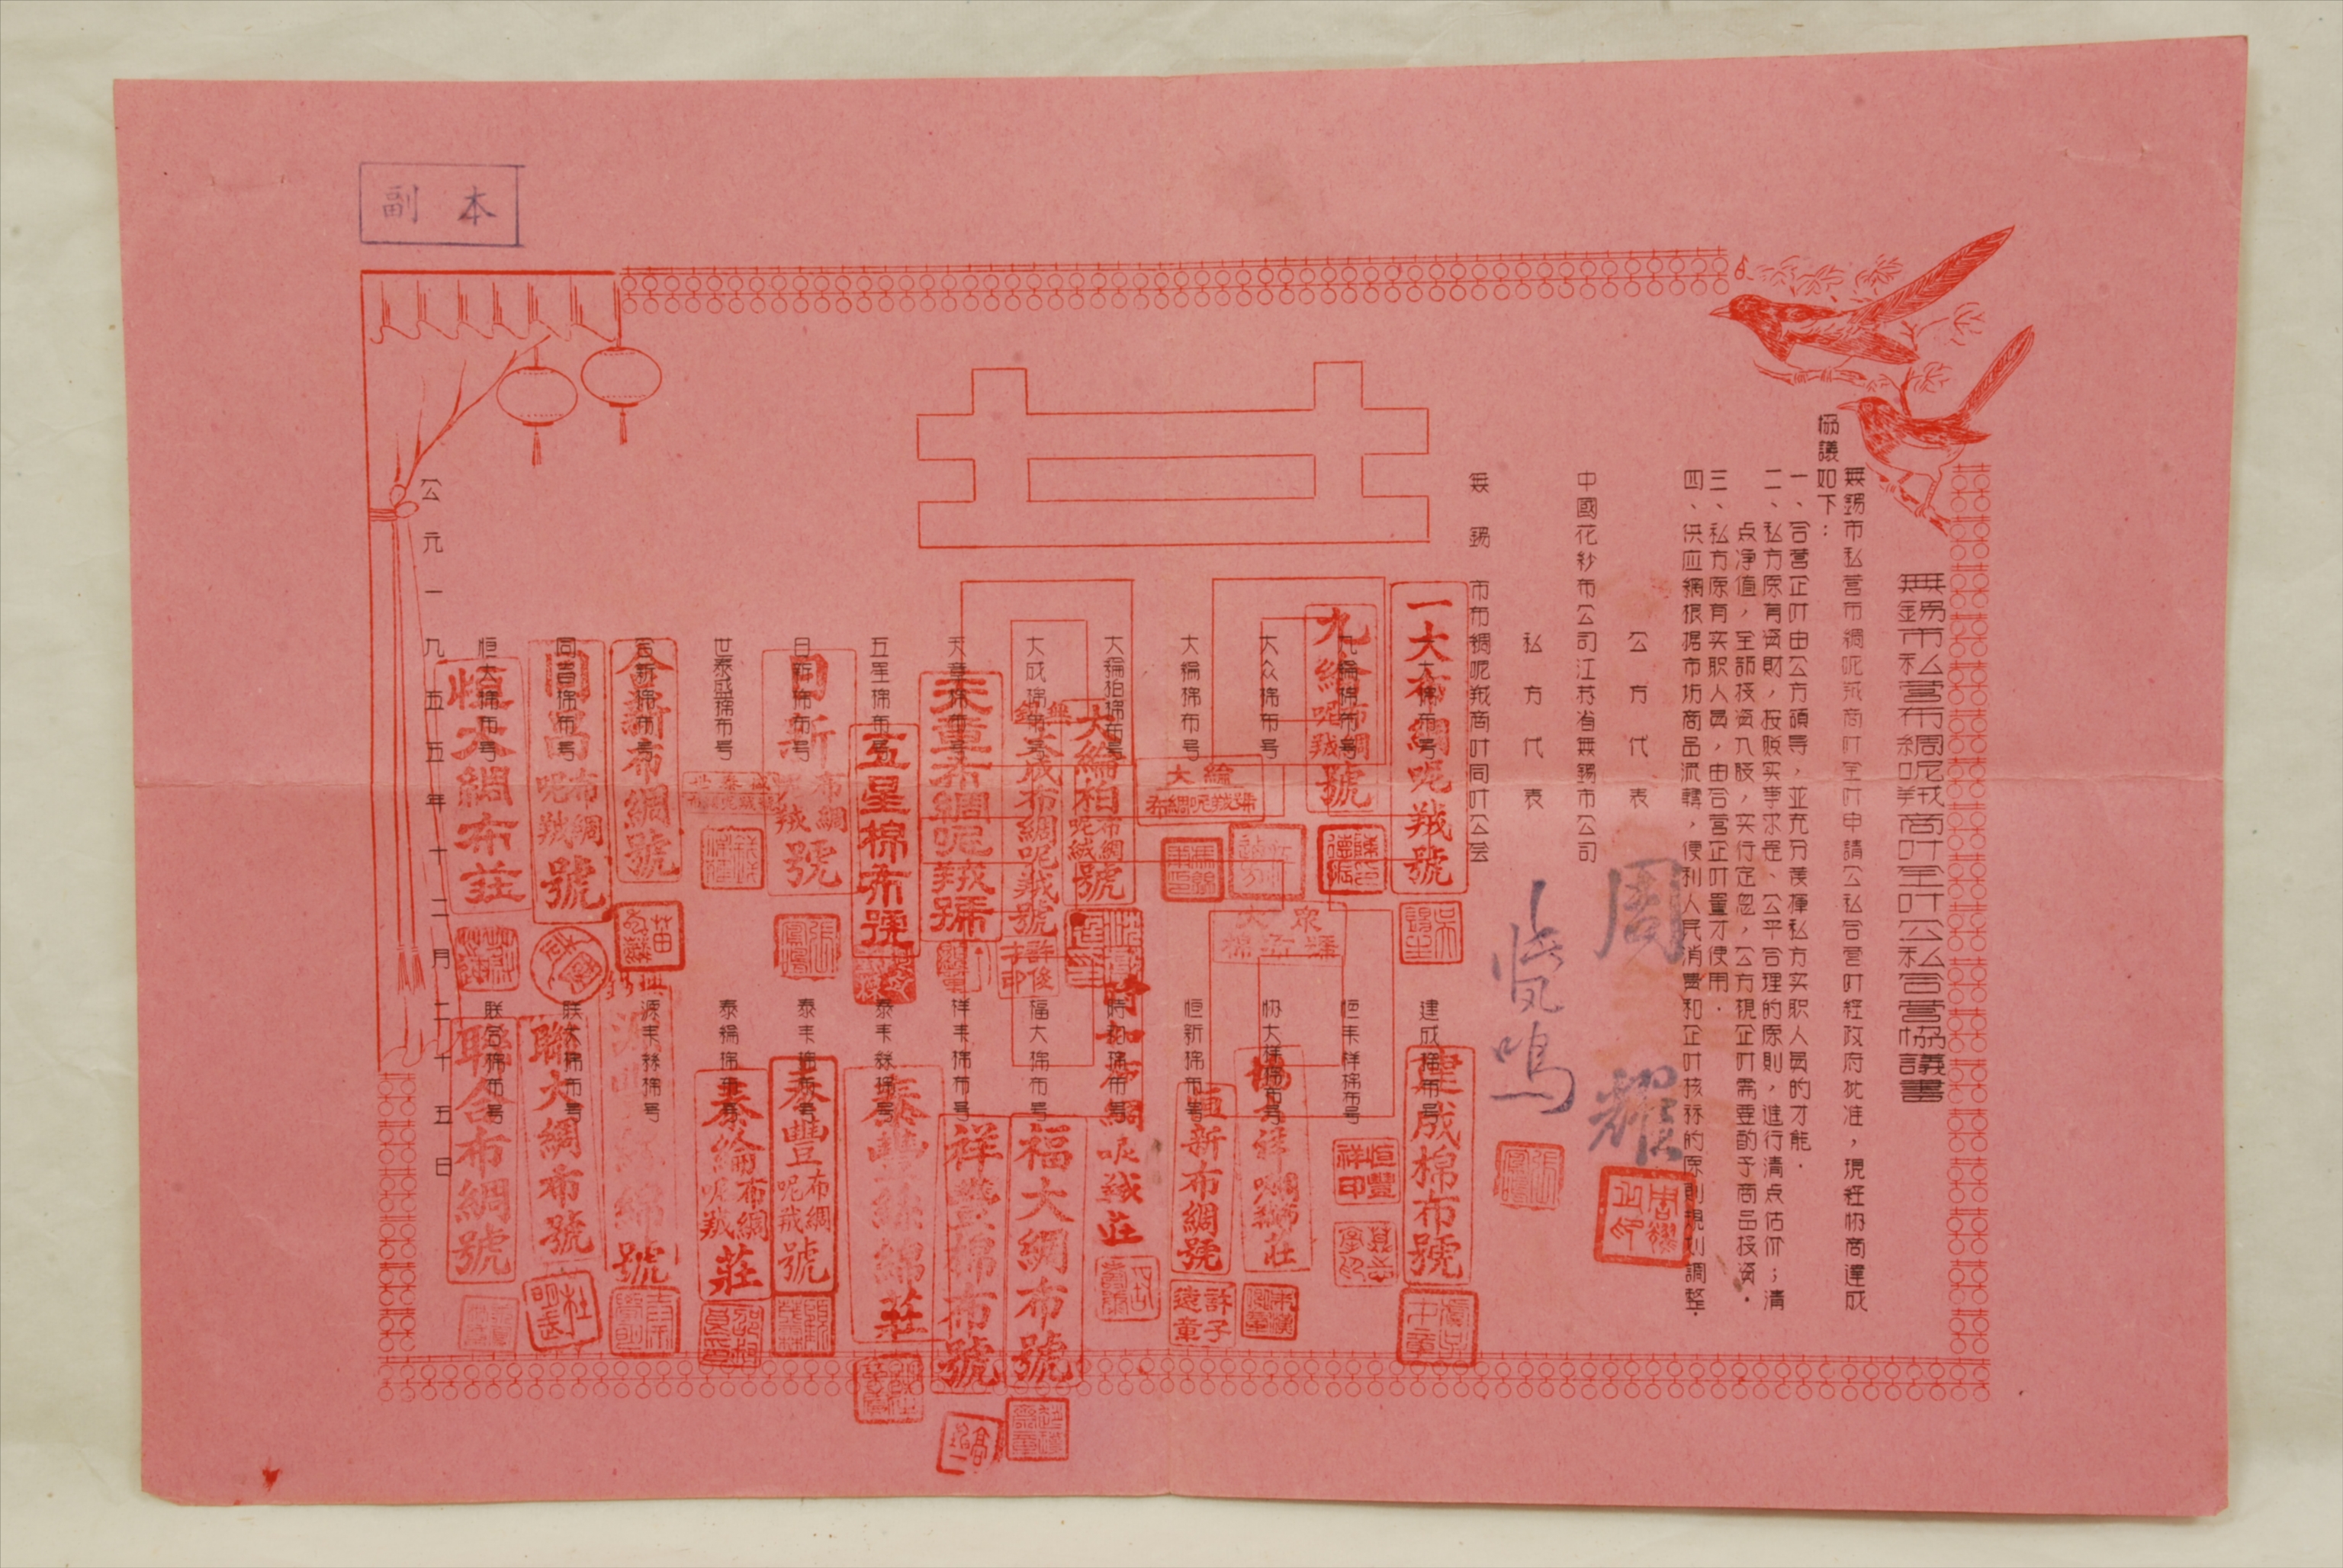 副本
無錫市私营布綢呢羢商叶全叶公私合营協議書
無錫市私营布綢呢羢商叶全叶申請公私合营叶經政府批准，現經协商達成
協議如下：
一、合营企叶由公方領導，並充分发揮私方实职人員的才能．
二、私方原有資財，按照实事求是、公平合理的原則，進行清点估价；清
点净值，全部投資入股，实行定息，公方視企叶需要酌予商品投資．
三、私方原有实职人員，由合营企叶量才使用．
四、供应網根据市場商品流轉，便利人民消費和企叶核祘的原則規划調整．
公方代表
周耀
中國花紗布公司江苏省無錫市公司
私方代表
無錫市布綢呢羢商叶同叶公会
一大棉布号
九綸棉布号
大众棉布号
大綸棉布号
大綸柏棉布号
大成棉布号
天章棉布号
五星棉布号
日新棉布号
世泰盛棉布号
合新棉布号
同昌棉布号
恒大棉布号
建成棉布号
恒丰祥棉布号
协大祥棉布号
恒新棉布号
時和棉布号
福大棉布号
祥丰棉布号
泰丰絲棉号
泰丰棉布号
泰綸棉布号
源丰絲棉号
联大棉布号
联合棉布号
一大布綢呢羢號
九綸布綢呢羢號
大綸
大綸柏布綢呢絨號
大成布綢呢羢號
天章布綢呢羢號
五星棉布號
日新布綢呢羢號
世泰盛
合新布綢號
同昌布綢呢羢號
恒大綢布莊
建成棉布號
恒豐祥印
恒新布綢號
許子遠章
時和布綢呢絨莊
福大綢布號
祥豐棉布號
泰豐絲綿莊
泰豐布綢呢羢號
泰綸布綢呢羢莊
聯大綢布號
聯合布綢號
公元一九五五年十二月二十五日